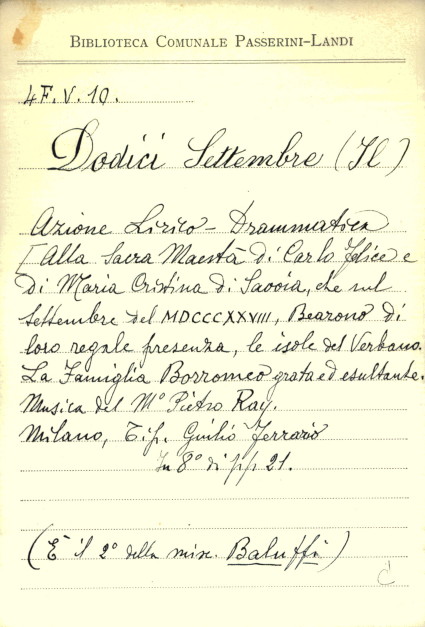 BIBLIOTECA COMUNALE PASSERINI-LANDI
4F.V.10.
Dodici Settembre (Il)
Azione Lirico - Drammatica
[Alla Sacra Maestà di Carlo Felice e
di Maria Cristina di Savoia, che nel
Settembre del MDCCCXXVIII, Bearono di
loro regale presenza, le isole del Verbano.
La Famiglia Borromeo grata ed esultante.
Musica del Mº Pietro Ray.
Milano, Tip. Giulio Ferrario
In 8º di pp 21.
(È il 2º della misc. Baluffi)